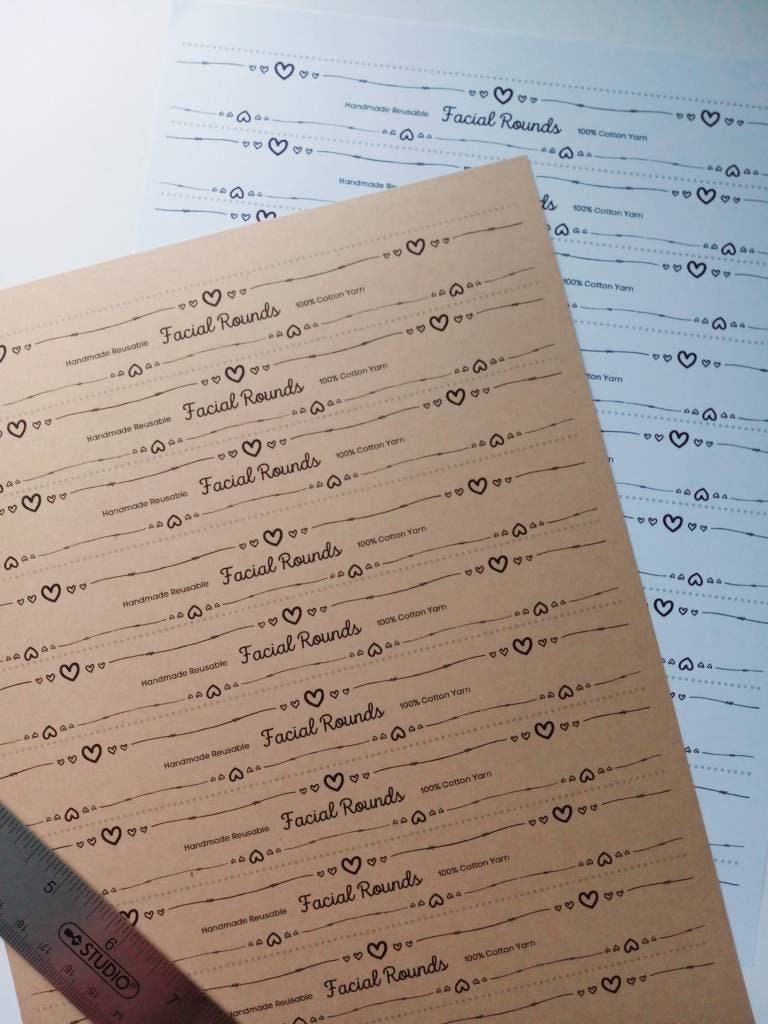 Handmade Reusable Facial Rounds 100% Cotton Yarn
Handmade Re ds 100% Cotton Yarn
100% Cotton Yarn
Yarn
Handmade Reusable Facial Rounds 100% Cotton Yarn
Handmade Reusable Facial Rounds 100% Cotton Yarn
Handmade Reusable Facial Rounds 100% Cotton Yarn
Handmade Reusable Facial Rounds 100% Cotton Yarn
Handmade Reusable Facial Rounds 100% Cotton Yarn
Handmade Reusable Facial Rounds 100% Cotton Yarn
Handmade Reusable Facial Rounds 100% Cotton Yarn
Handmade Reusable Facial Rounds 100% Cotton Yarn
Handmade Reusable Facial Rounds 100% Cotton Yarn
5 6 7
STUDIO
18 17 16 15 14